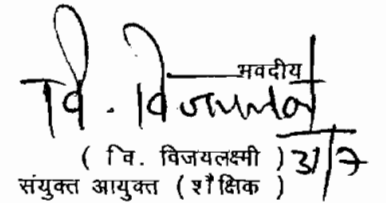 भवदीय
वि. विजयलक्ष्मी
( वि. विजयलक्ष्मी ) 31/7
संयुक्त आयुक्त ( शैक्षिक )